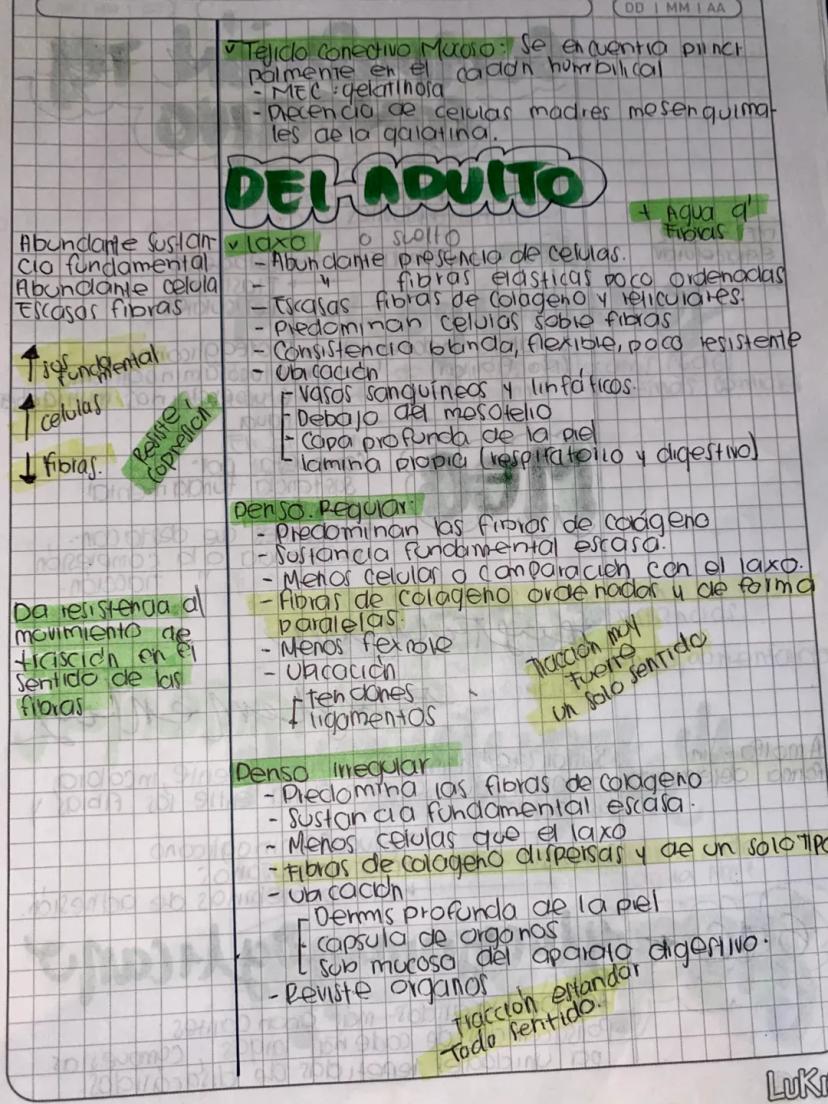 DD | MM | AA
✓ Tejido conectivo Mucoso: Se encuentra princi
palmente en el cadon humbilical
- MEC: gelatinosa
- Precencia de celulas madres mesenquima-
les de la galatina.
DEL ADULTO
+ Agua q'
Fibras
Abundante sustan
cia fundamental
Abundante celula
Escasas fibras
↑ sus fundmental
↑ celulas
↓ fibras.
Resiste
copresion
✓ laxo o suelto
- Abundante presencia de celulas.
- " fibras elasticas poco ordenadas
- Escasas fibras de colageno y reliculares.
- Predominan celulas sobre fibras
- Consistencia blanda, flexible, poco resistente
- Ubicación
- Vasos sanguíneos y linfáticos.
- Debajo del mesotelio
- Capa profunda de la piel
- lamina propia (respiratorio y digestivo)
Denso Regular:
- Predominan las fibras de colágeno
- Sustancia fundamental escasa.
- Menos celulas a comparación con el laxo.
- Fibras de colageno ordenadas y de forma
paralelas.
- Menos
- Ubicación
tendones
ligamentos
Da resistencia al
movimiento de
en el
sentido de las
fibras
Tracción muy
fuerte
un solo sentido
Denso irregular
- Predomina las fibras de colageno
- Sustancia fundamental escasa.
- Menos celulas que el laxo
- Fibras de colageno dispersas y de un solo TIPO
- Ubicación
Dermis profunda de la piel
capsula de organos
sub mucosa del aparato digestivo.
- Reviste organos
Tracción estandar
Todo sentido.